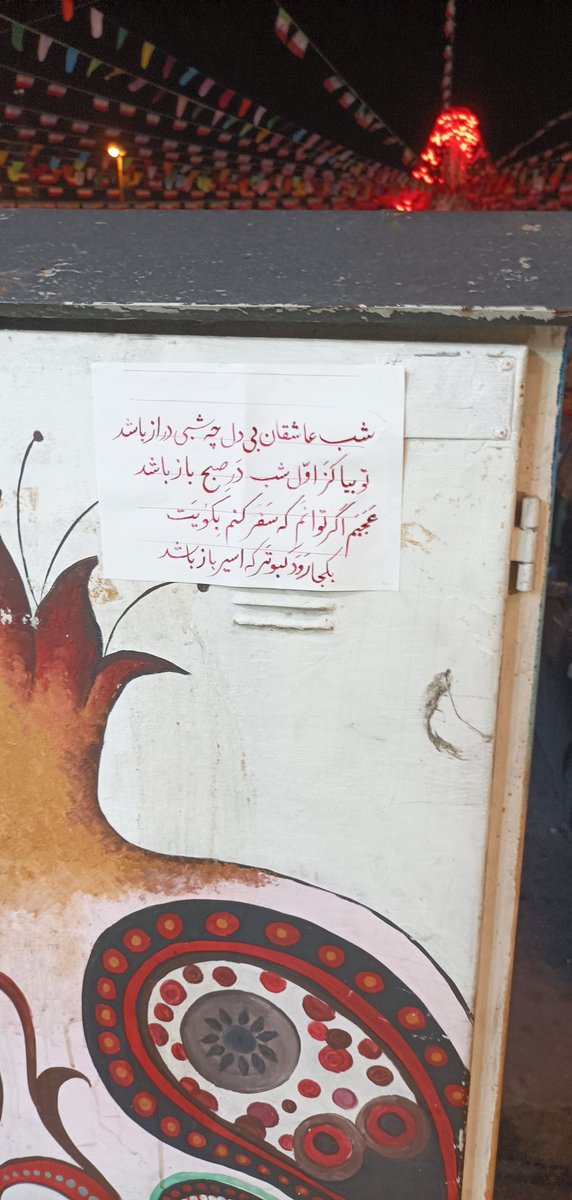 شب عاشقان بی دل چه شبی دراز باشد
تو بیا کز اوّل شب درِ صبح باز باشد
عَجَبَم اگر توانم که سَفَر کنم بِکویَت
بکجا رَوَد کبوتر که اسیر باز باشد